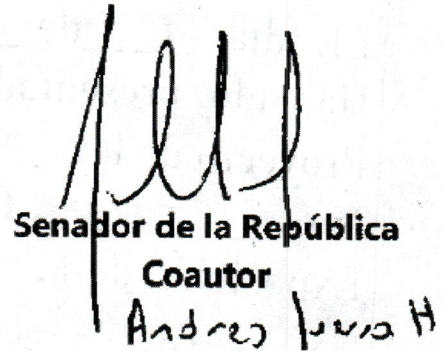 Senador de la República
Coautor
Andres H